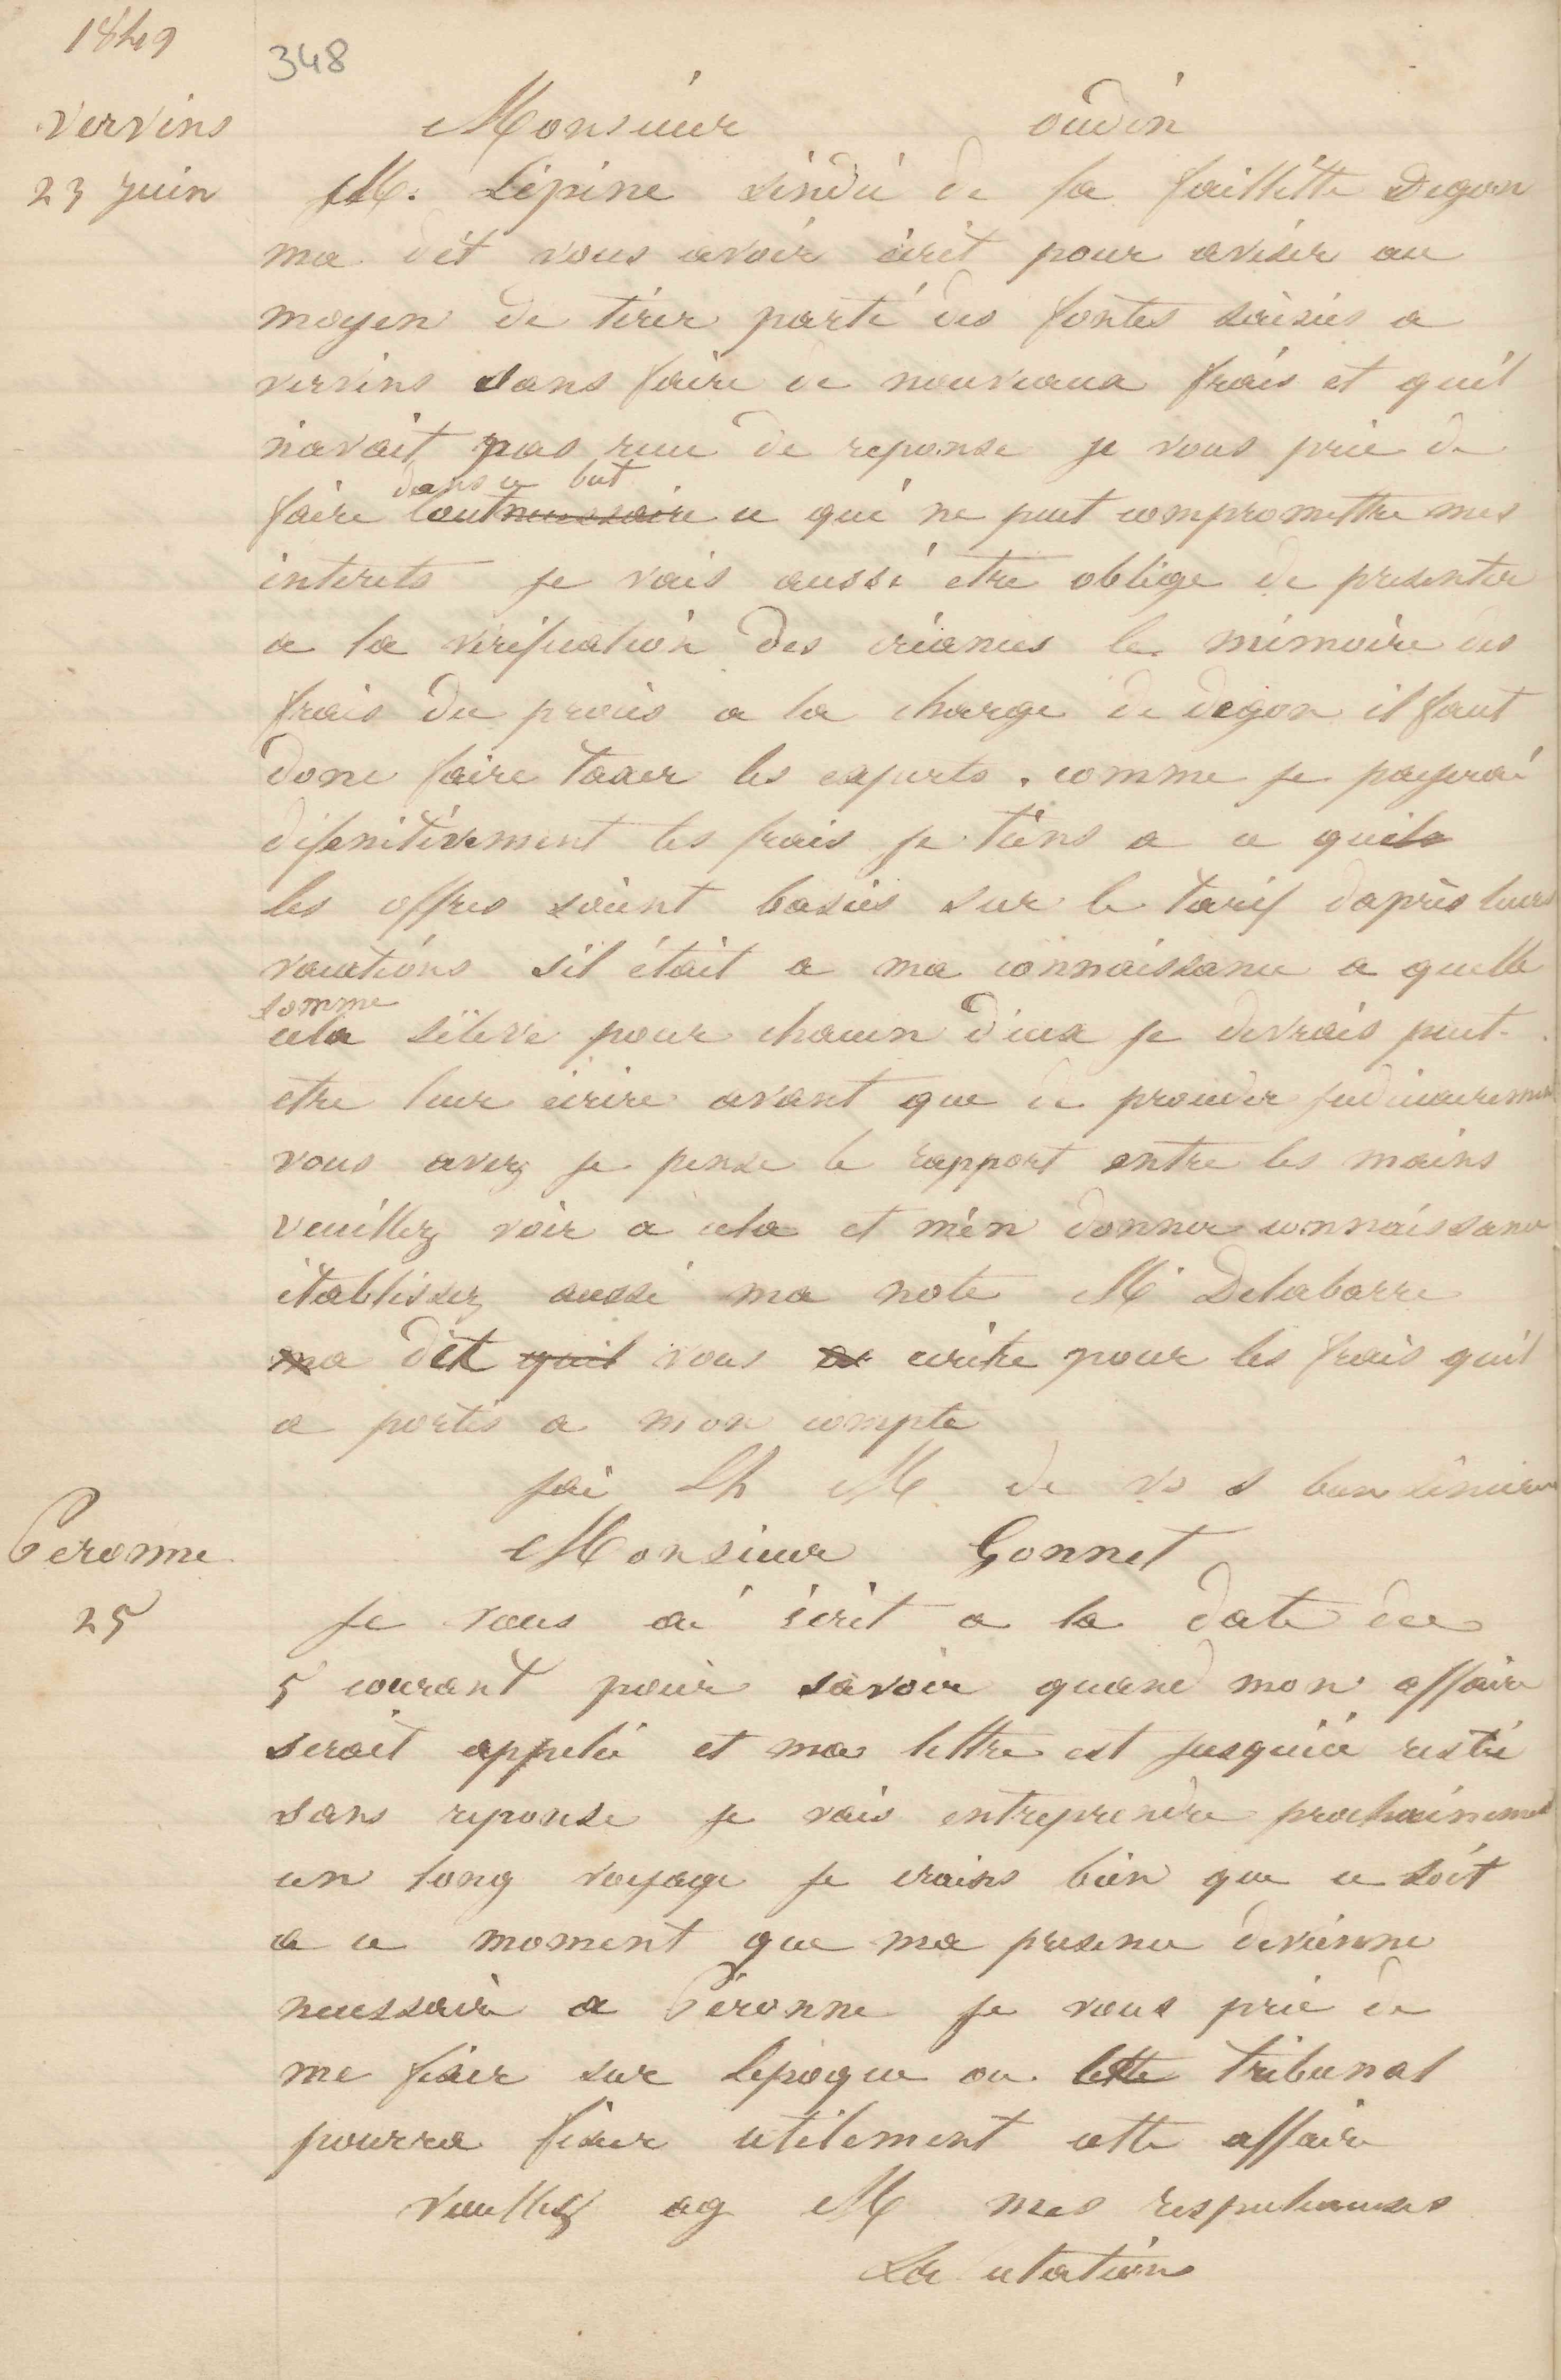 1849
348
Vervins
23 juin
Monsieur oudin
M. Lépine sindic de la faillitte Degon
ma dit vous avoir écrit pour aviser au
moyen de tirer parti des fontes saisies a
vervins sans faire de nouveaux frais et qu'il
n'avait pas recu de reponse je vous prie de
dans ce but
faire tout necessaire ce qui ne peut compromettre mes
interets je vais aussi etre obligé de presenter
a la vérification des créances le mémoire des
frais du procès a la charge de degon il faut
donc faire taxer les experts . comme je payerai
définitivement les frais je tiens a ce que
les offres soient basées sur le tarif daprès leurs
vacations s'il était a ma connaissance a quelle
somme
cela séleve pour chacun d'eux je devrais peut-
etre leur écrire avant que de proceder judiciairement
vous avez je pense le rapport entre les mains
veuillez voir a cela et m'en donner connaissance
établissez aussi ma note M Delabarre
ma dit quil vous a écrire pour les frais qu'il
a portés a mon compte
jai Lh M de vs s bien sincère
Peronne
25
Monsieur Gonnet
Je vous ai écrit a la date du
5 courant pour savoir quand mon affaire
serait appelée et ma lettre est jusquici restée
sans reponse je vais entreprendre prochainement
un long voyage je crains bien que ce soit
a ce moment que ma presence devienne
necessaire a Péronne je vous prie de
me fixer sur lepoque ou le tribunal
pourra fixer utilement cette affaire
Veuillez ag M mes respectueuses
Salutations